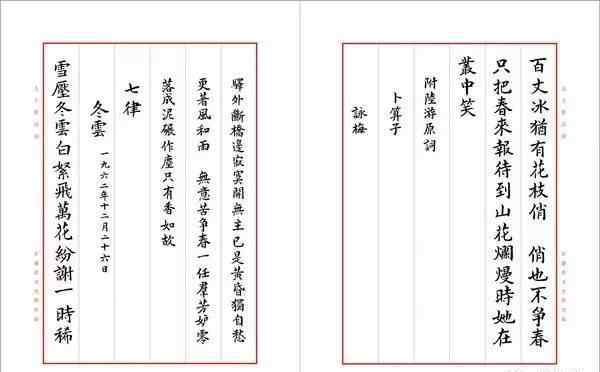 百丈冰猶有花枝俏 俏也不爭春
只把春來報待到山花爛熳時她在
叢中笑
附陸游原詞
卜算子
詠梅
驛外斷橋邊寂寞開無主已是黃昏獨自愁
更著風和雨 無意苦爭春一任羣芳妒零
落成泥碾作塵只有香如故
七律
冬雲 一九六二年十二月二十六日
雪壓冬雲白絮飛萬花紛謝一時稀